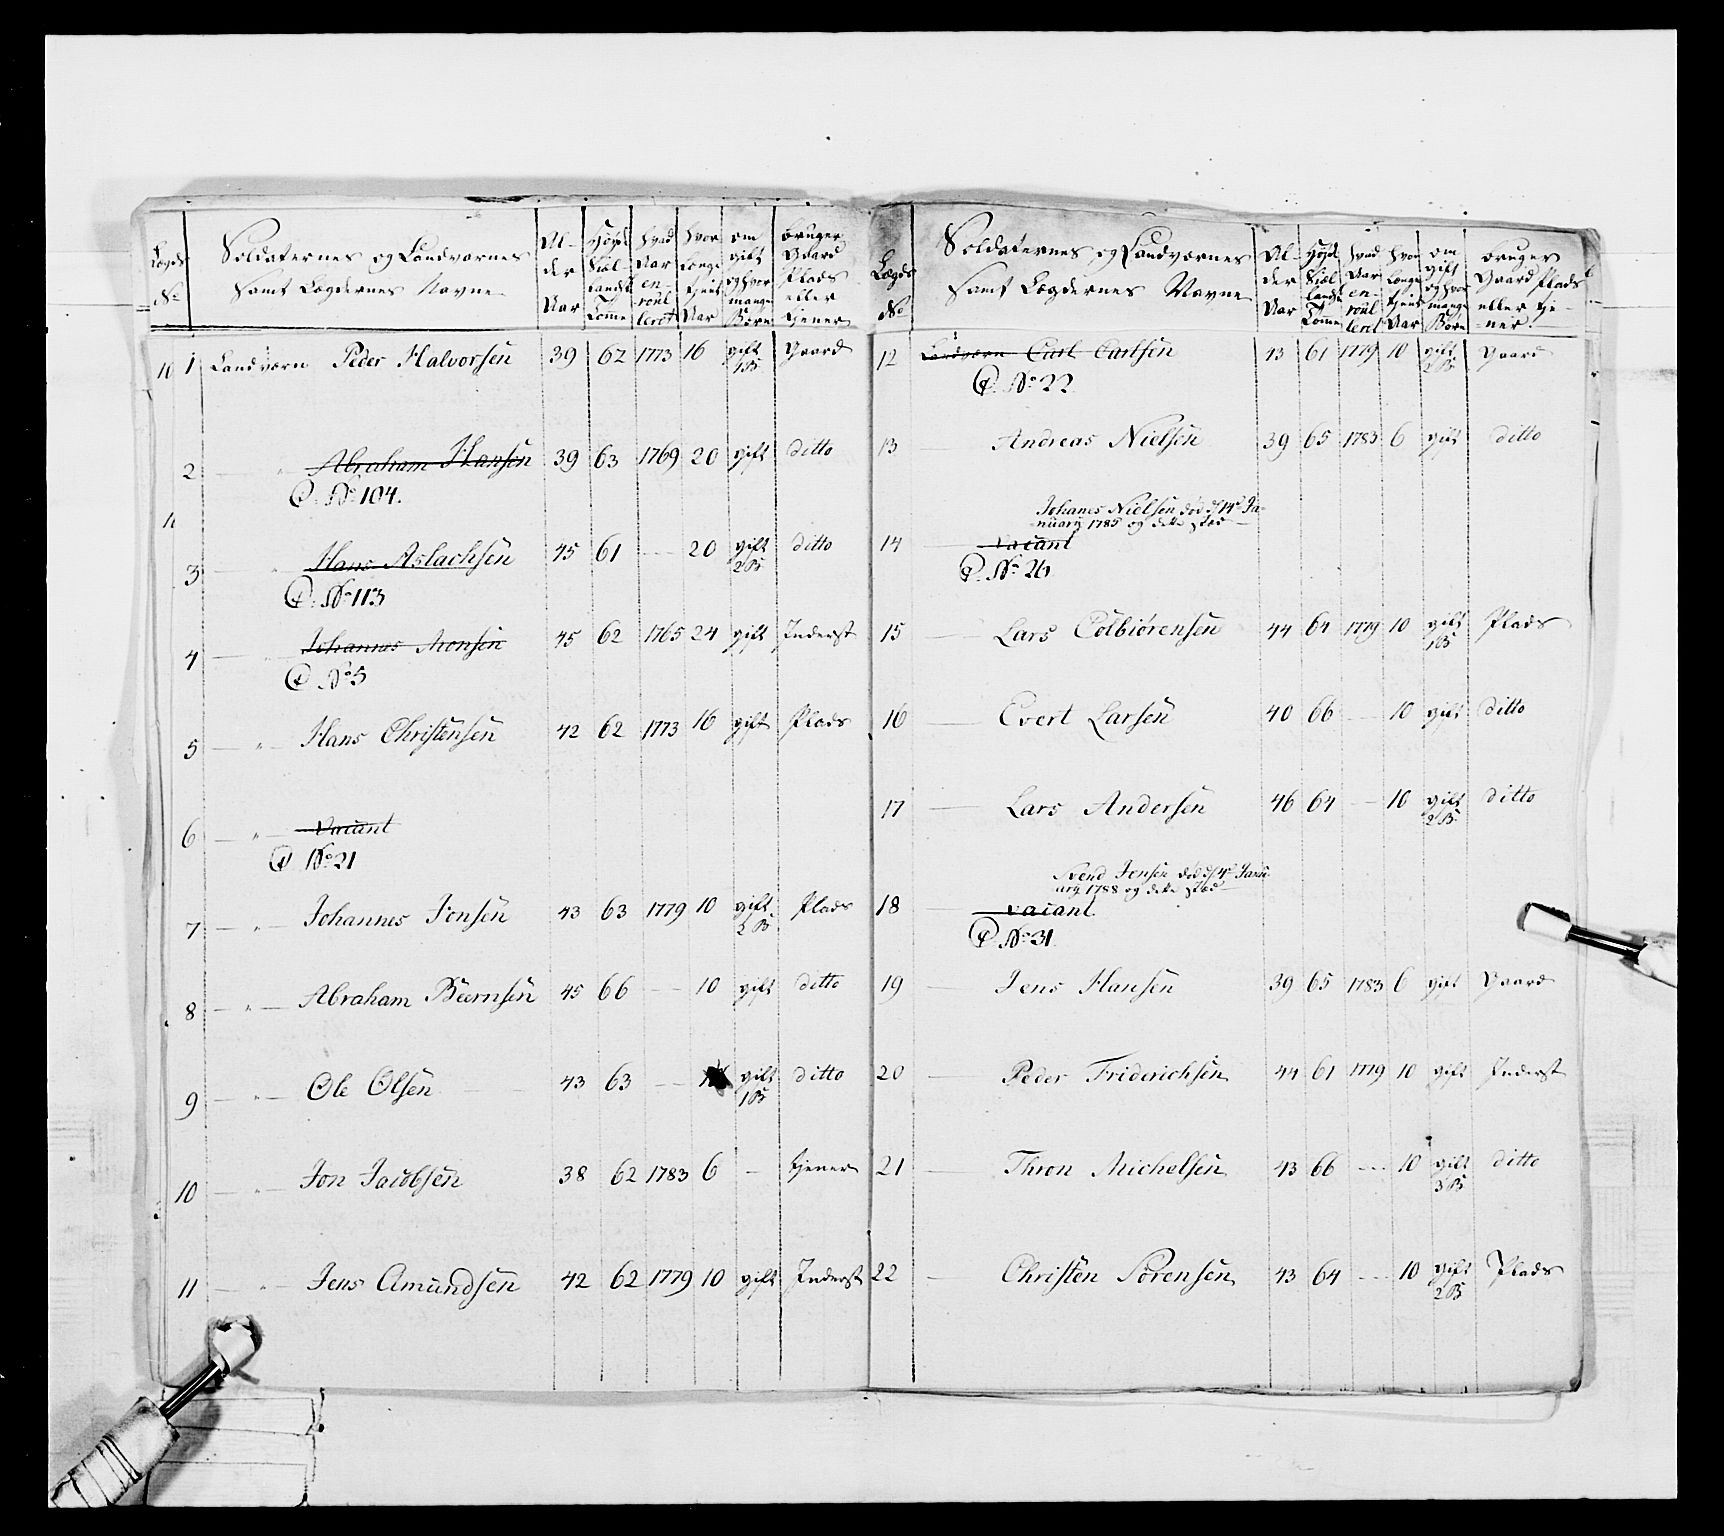 Lægds No
Soldaternes og Landværnes samt Lægdernes Navne
Al- der Aar
Høyde Siæl- landsk Tomme
hvad Aar en- roul- leret
hvor længe tjent Aar
om gift og hvor mange Børn
bruger Gaard Plads eller tjener
10 1 Landværn Peder Halvorsen 39 62 1773 16 gift 1B Gaard
2 — " Abraham Hansen 39 63 1769 20 gift ditto
No 104.
11
3 — " Hans Aslachsen 45 61 — 20 gift 2B ditto
No 113
4 — " Johannes Monsen 45 62 1765 24 gift Inderst
No 5
5 — " Hans Christensen 42 62 1773 16 gift Plads
6 — " vacant
No 21
7 — " Johannes Jonsen 43 63 1779 10 gift 2B Plads
8 — " Abraham Biørnsen 45 66 — 10 gift ditto
9 — " Ole Olsen 43 63 — gift 1B ditto
10 — " Jon Jacobsen 38 62 1783 6 — tjener
11 — " Jens Amundsen 42 62 1779 10 gift Inderst
Lægds No
Soldaternes og Landværnes samt Lægdernes Navne
Al- der Aar
Høyde Siæl- landsk Tomme
hvad Aar en- roul- leret
hvor længe tjent Aar
om gift og hvor mange Børn
bruger Gaard Plads eller tje- ner
12 Landværn Carl Carlsen 43 61 1779 10 gift 2B Gaard
No 22
13 Andreas Nielsen 39 65 1783 6 gift ditto
Johanes Nielsen død d. 14de Ja-
nuary 1785 og dette stæd
14 — vacant
No 26
15 — Lars Colbiørensen 44 64 1779 10 gift 1B Plads
16 — Evert Larsen 40 66 — 10 gift ditto
17 — Lars Andersen 46 64 — 10 gift 2B ditto
Svend Jensen død d. 4de Janu-
ary 1788 og dette stæd
18 — vacant
No 31
19 — Jens Hansen 39 65 1783 6 gift Gaard
20 — Peder Friderichsen 44 61 1779 10 gift Inderst
21 — Thron Michelsen 43 66 — 10 gift 3B ditto
22 — Christen Sørensen 43 64 — 10 gift 2B Plads